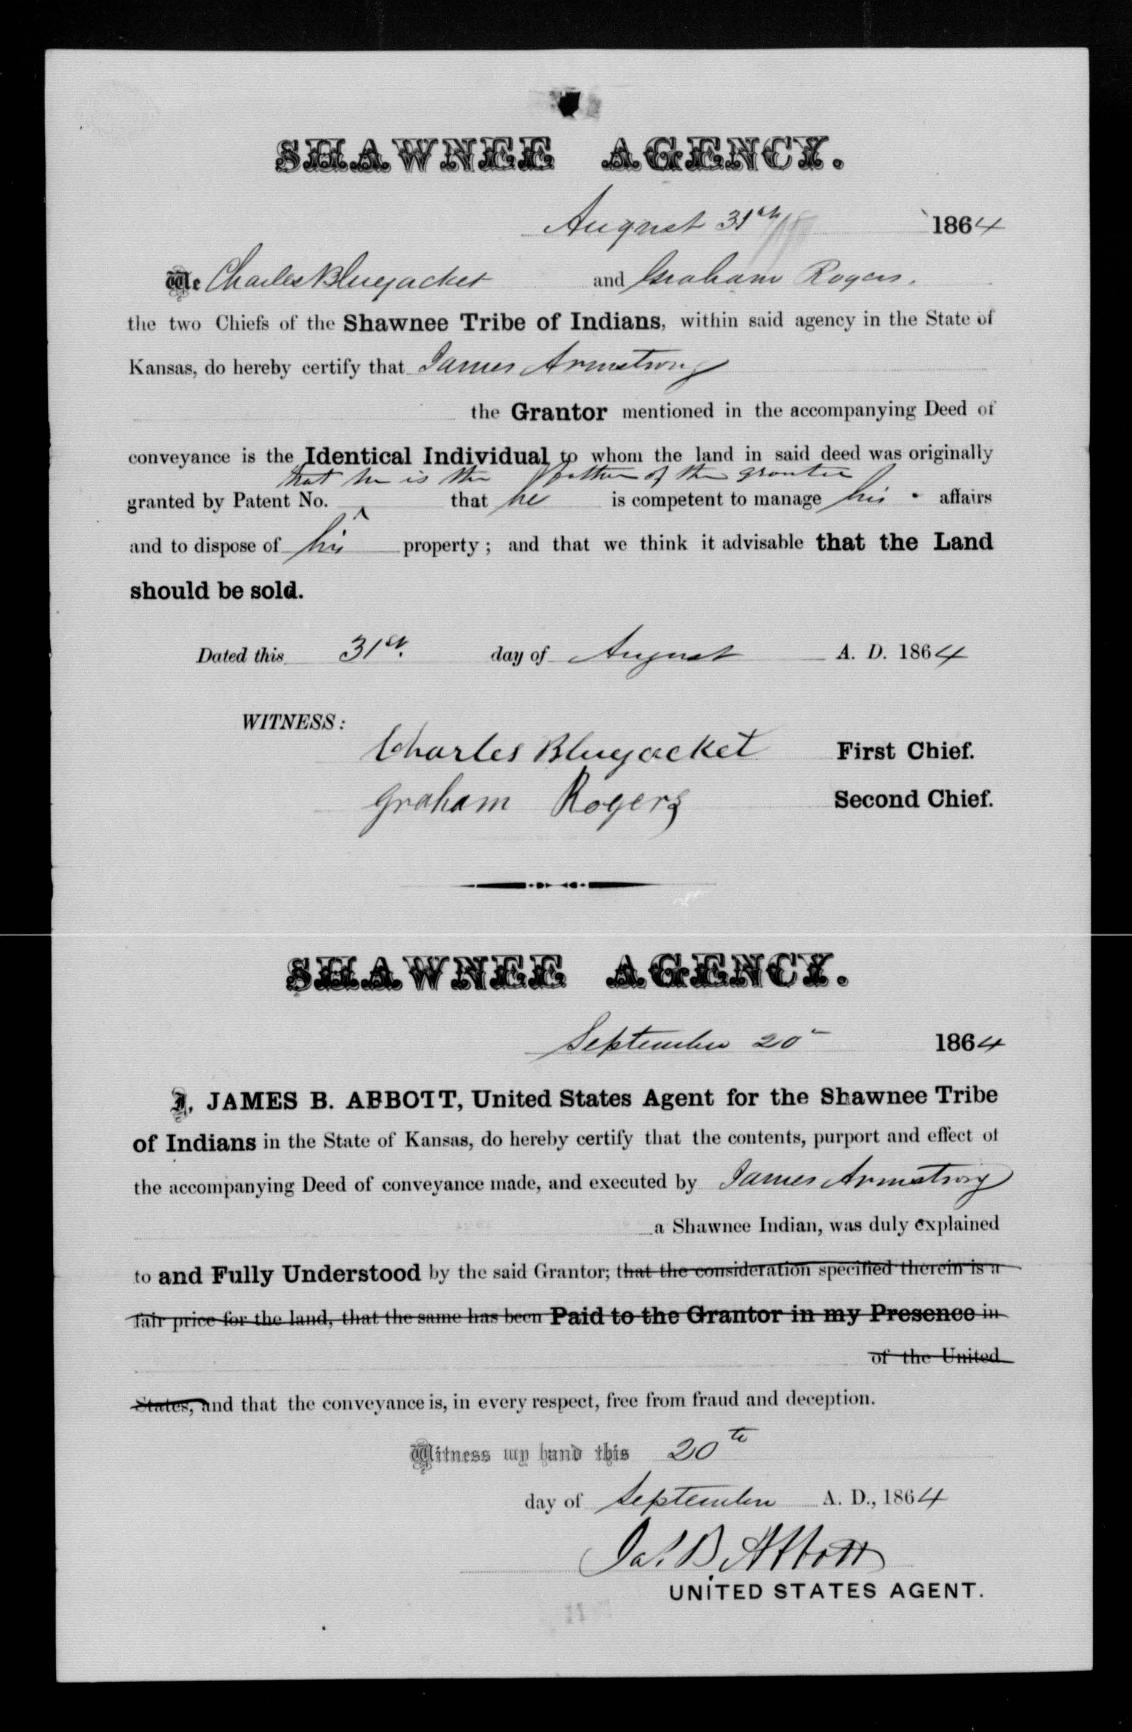 SHAWNEE AGENCY.
August 31st 1864
We Charles Bluejacket and Graham Rogers.
the two Chiefs of the Shawnee Tribe of Indians, within said agency in the State of
Kansas, do hereby certify that James Armstrong
the Grantor mentioned in the accompanying Deed of
conveyance is the Identical Individual to whom the land in said deed was originally
that he is the father of the grantee
granted by Patent No. ^ that he is competent to manage his affairs
and to dispose of his property; and that we think it advisable that the Land
should be sold.
Dated this 31st. day of August A. D. 1864
WITNESS:
Charles Bluejacket First Chief.
Graham Rogers Second Chief.
SHAWNEE AGENCY.
September 20 1864
I, JAMES B. ABBOTT, United States Agent for the Shawnee Tribe
of Indians in the State of Kansas, do hereby certify that the contents, purport and effect of
the accompanying Deed of conveyance made, and executed by James Armstrong
a Shawnee Indian, was duly explained
to and Fully Understood by the said Grantor; that the consideration specified therein is a
fair price for the land, that the same has been Paid to the Grantor in my Presence in
of the United
States, and that the conveyance is, in every respect, free from fraud and deception.
Witness my hand this 20th
day of September A. D., 1864
Jas. B. Abbott
UNITED STATES AGENT.